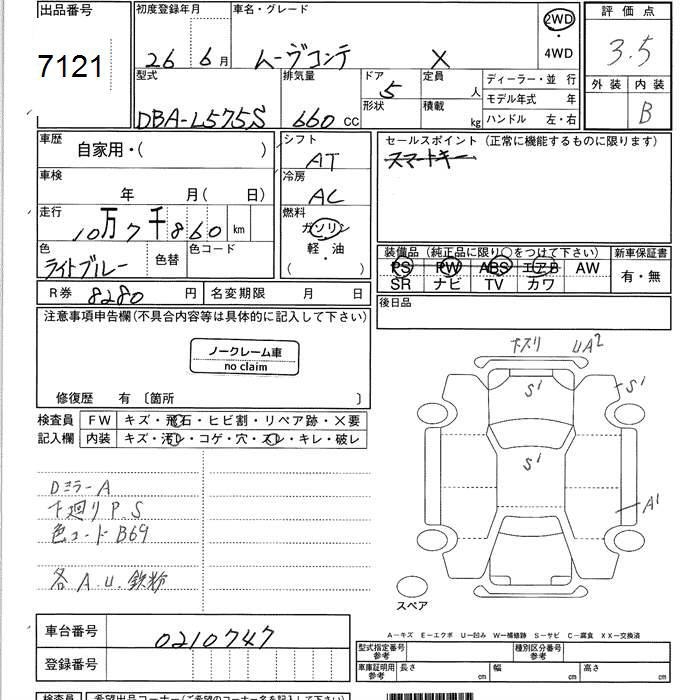 出品番号
7121
初度登録年月
26 6月
車名・グレード
ムーヴコンテ X
2WD
・
4WD
評価点
3.5
外装 内装
B
型式
DBA-L575S
排気量
660 CC
ドア
5
形状
定員
人
積載
kg
ディーラー・並 行
モデル年式 年
ハンドル 左・右
車歴
自家用・( )
車検
年 月( 日)
走行
10万7千860 km
色
ライトブルー
色替
色コード
R券 8280 円
名変期限 月 日
シフト
AT
冷房
AC
燃料
ガソリン
軽・油
( )
セールスポイント (正常に機能するものに限ります)
スマートキー
装備品 (純正品に限り○をつけて下さい)
PS PW ABS エアB AW
SR ナビ TV カワ
新車保証書
有・無
後日品
注意事項申告欄(不具合内容等は具体的に記入して下さい)
ノークレーム車
no claim
修復歴 有 〔箇所 〕
検査員
記入欄
FW キズ・飛石・ヒビ割・リペア跡・×要
内装 キズ・汚レ・コゲ・穴・スレ・キレ・破レ
DミラーA
下廻り P S
色コード B69
各 A.U.鉄粉
下スリ UA2
S1
S1
S1
A1
スペア
A―キズ E―エクボ U―凹み W―補修跡 S―サビ C―腐食 XX―交換済
車台番号 0210747
登録番号
型式指定番号
参考
種別区分番号
参考
車庫証明用
参考
長さ cm
幅 cm
高さ cm
検査員
希望出品コーナー(ご希望のコーナー名を記入して下さい)